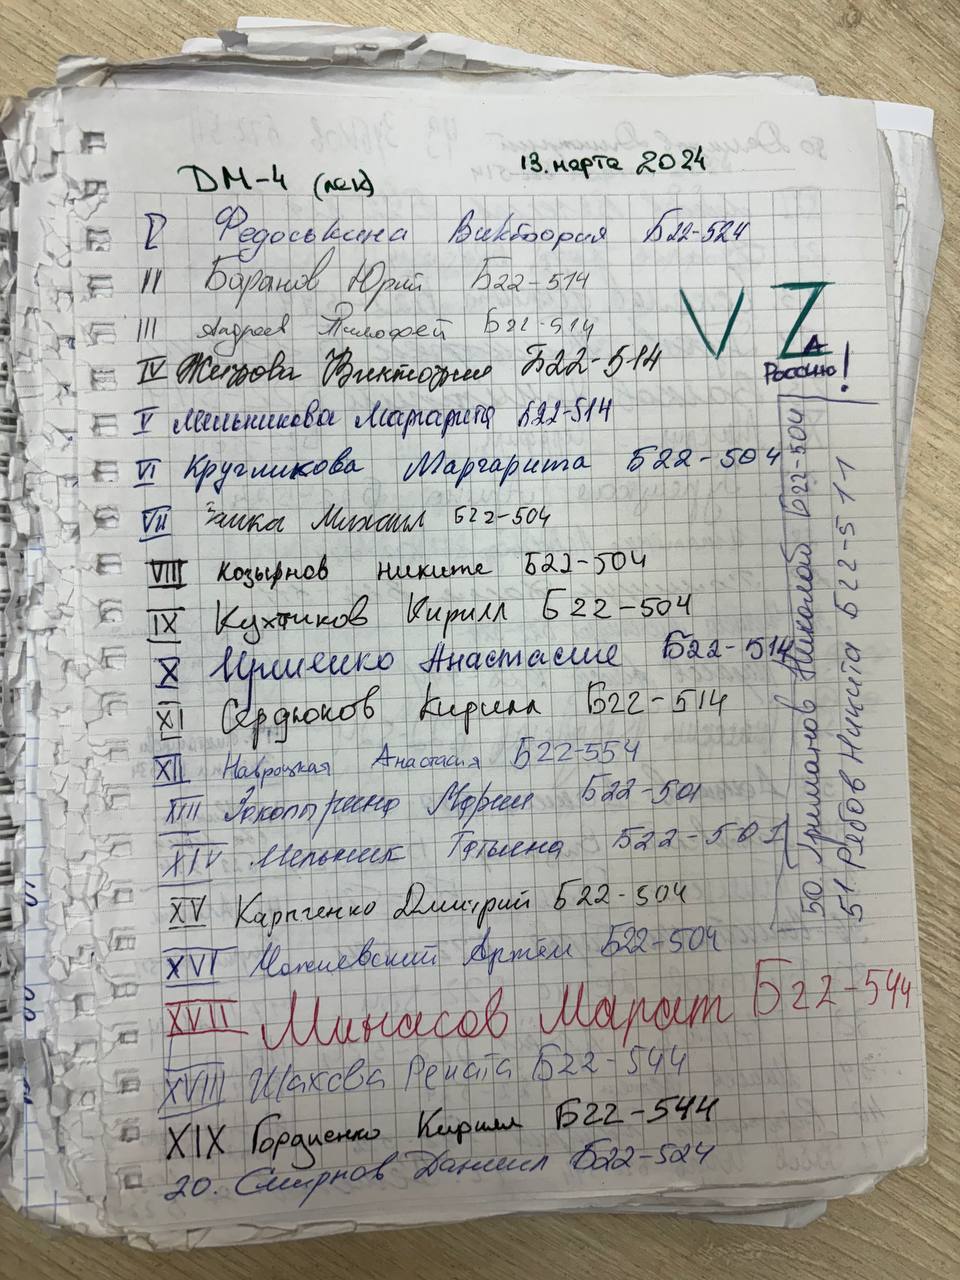 DM-4 (лек) 13. марта 2024
I Федоськина Виктория Б22-524
II Баранов Юрий Б22-514
III Андреев Тимофей Б22-514
IV Жирова Виктория Б22-514
V Мельникова Маргарита Б22-514
VI Кругликова Маргарита Б22-504
VII Заика Михаил Б22-504
VIII Козырнов Никита Б22-504
IX Кухтиков Кирилл Б22-504
X Анастасия Б22-514
XI Сердюков Кирилл Б22-514
XII Навроцкая Анастасия Б22-554
XIII Мария Б22-501
XIV Мельник Татьяна Б22-501
XV Карпенко Дмитрий Б22-504
XVI Можневский Артём Б22-504
XVII Минасов Марат Б22-544
XVIII Шахова Рената Б22-544
XIX Гордиенко Кирилл Б22-544
20. Смирнов Даниил Б22-524
V Z
А
Россию!
50. Николай Б22-504
51. Рябов Никита Б22-511